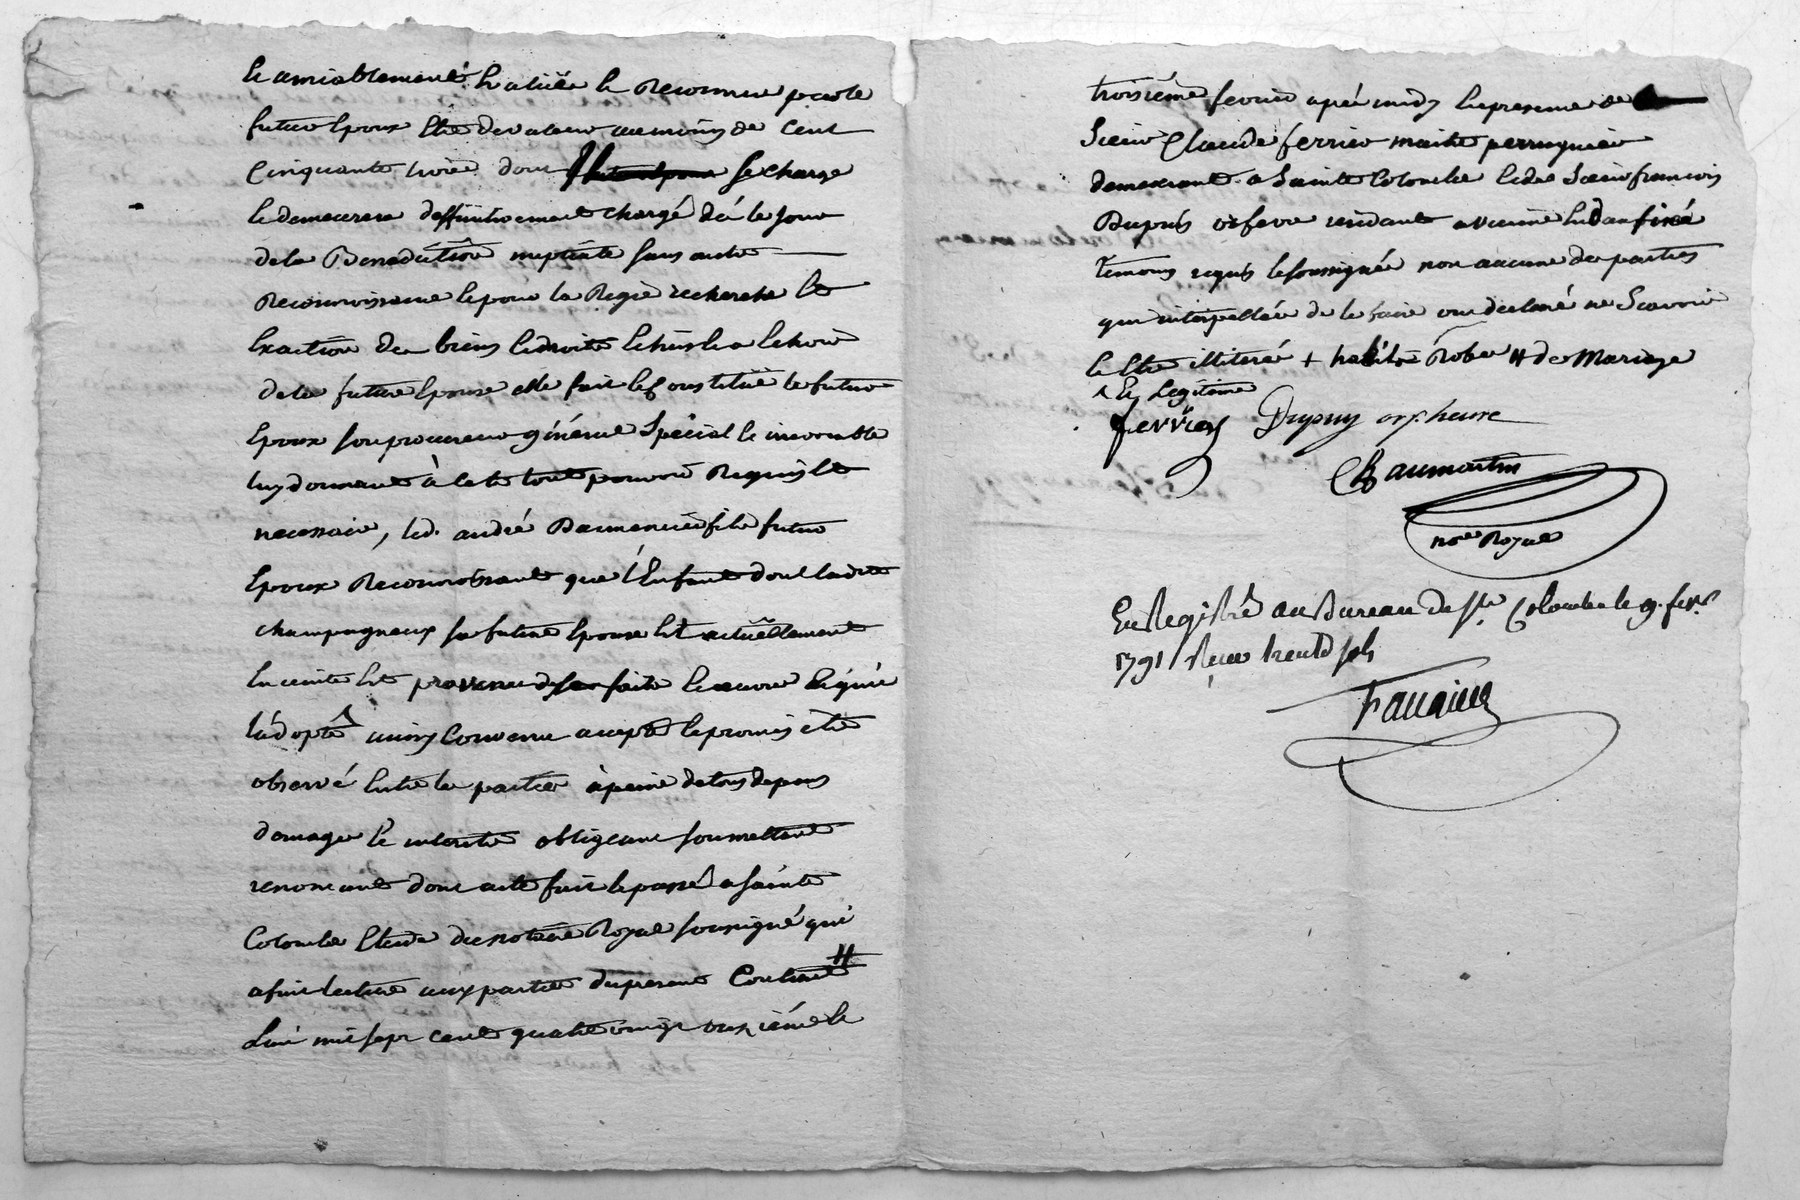 et amiablement Evaluée et Reconnue par le
futur Epoux Etre de valeur au moins de Cent
Cinquante trois dont se charge
et demeurera deffinitivement chargé dés le Jour
de la Benediction nuptiale sans autre
Reconnoissance et pour la Regie recherche et
Exaction des biens et droits Echus et a Echoir
de la future Epouse elle fait et Constitue le futur
Epoux son procureur général Special et irrevocable
luy donnant à cet tout pouvoir Requis et
necessaire, led. andré fils futur
Epoux Reconnoissant que l'Enfant dont ladite
champagneux sa future Epouse Est actuellement
Enceinte Est provenu de ses faits et œuvre
l'adopte ainsy Convenu accepté et promis etre
observé Entre les parties à peine de tous depens
domages et interets obligeant soumettant
renonceant dont acte fait et passé a Sainte
Colombe Etude du notaire Royal soussigné qui
a fait lecture aux parties du present Contract #
L'an mil sept cent quatre vingt onzième le
troisieme fevrier aprés midy En presence de
Sieur Claude ferrier maitre perruquier
demeurant a Sainte Colombe et de Sieur francois
Dupuis orfevre residant a vienne En daufiné
temoins requis et soussignés non aucune des parties
qui interpellée de le faire ont declaré ne Scavoir
et Etre illiteré + habits Robes # de Mariage
^ Et Legitime
ferrier Dupuy orpheure
Chaumartin
no.re Royal
En Registré au Bureau de Ste. Colombe le 9. fevr.
1791 Recu trente sols